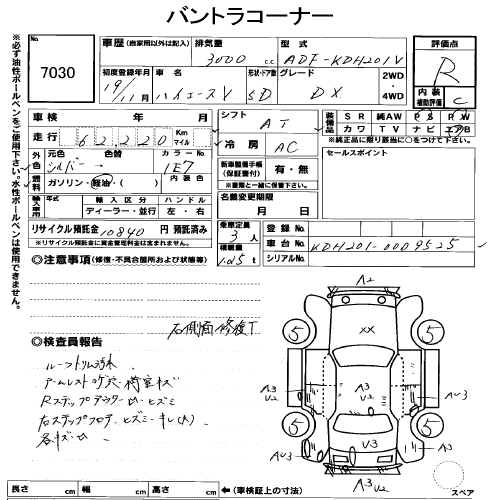 バントラコーナー
※必ず油性ボールペンをご使用下さい。水性ボールペンは使用できません。
7030
車歴 (自家用以外は記入)
排気量 3000 c.c
型式 ADF-KDH201V
評価点 R
初度登録年月 19/11月
車名 ハイエースV
ドア数 5D
グレード DX
2WD・4WD
内装補助評価 C
車検 年 月
シフト AT
装備品 SR 純AW PS PW
カワ TV ナビ エアB
※純正品に限り該当に○をつけて下さい
走行 62,220 Km マイル
冷房 AC
セールスポイント
外色 元色 シルバー 色替 カラーNo 1E7
新車整備手帳(保証書付) 有・無
※車歴と一緒に保管下さい。
燃料 ガソリン・軽油・( ) 内装色
名義変更期限 月 日
輸入車用 輸入区分 ディーラー・並行 ハンドル 左・右
リサイクル預託金 10840 円 預託済み
※リサイクル預託金に資金管理料金は含まれておりません。
乗車定員 3人
積載量 1.25t
登録No
車台No KDH201-0009525
シリアルNo
◎注意事項 (修復・不具合箇所および状態等)
右側面修復T
◎検査員報告
ルーフトリム汚れ
アームレスト
Rステップ
右ステップフロアーヒズミ
各キズ
A2
XX
A3
V2
A3
U2
V3
AU3
AU3
A3 U2
5
5
5
5
スペア
長さ cm 幅 cm 高さ cm ←(車検証上の寸法)